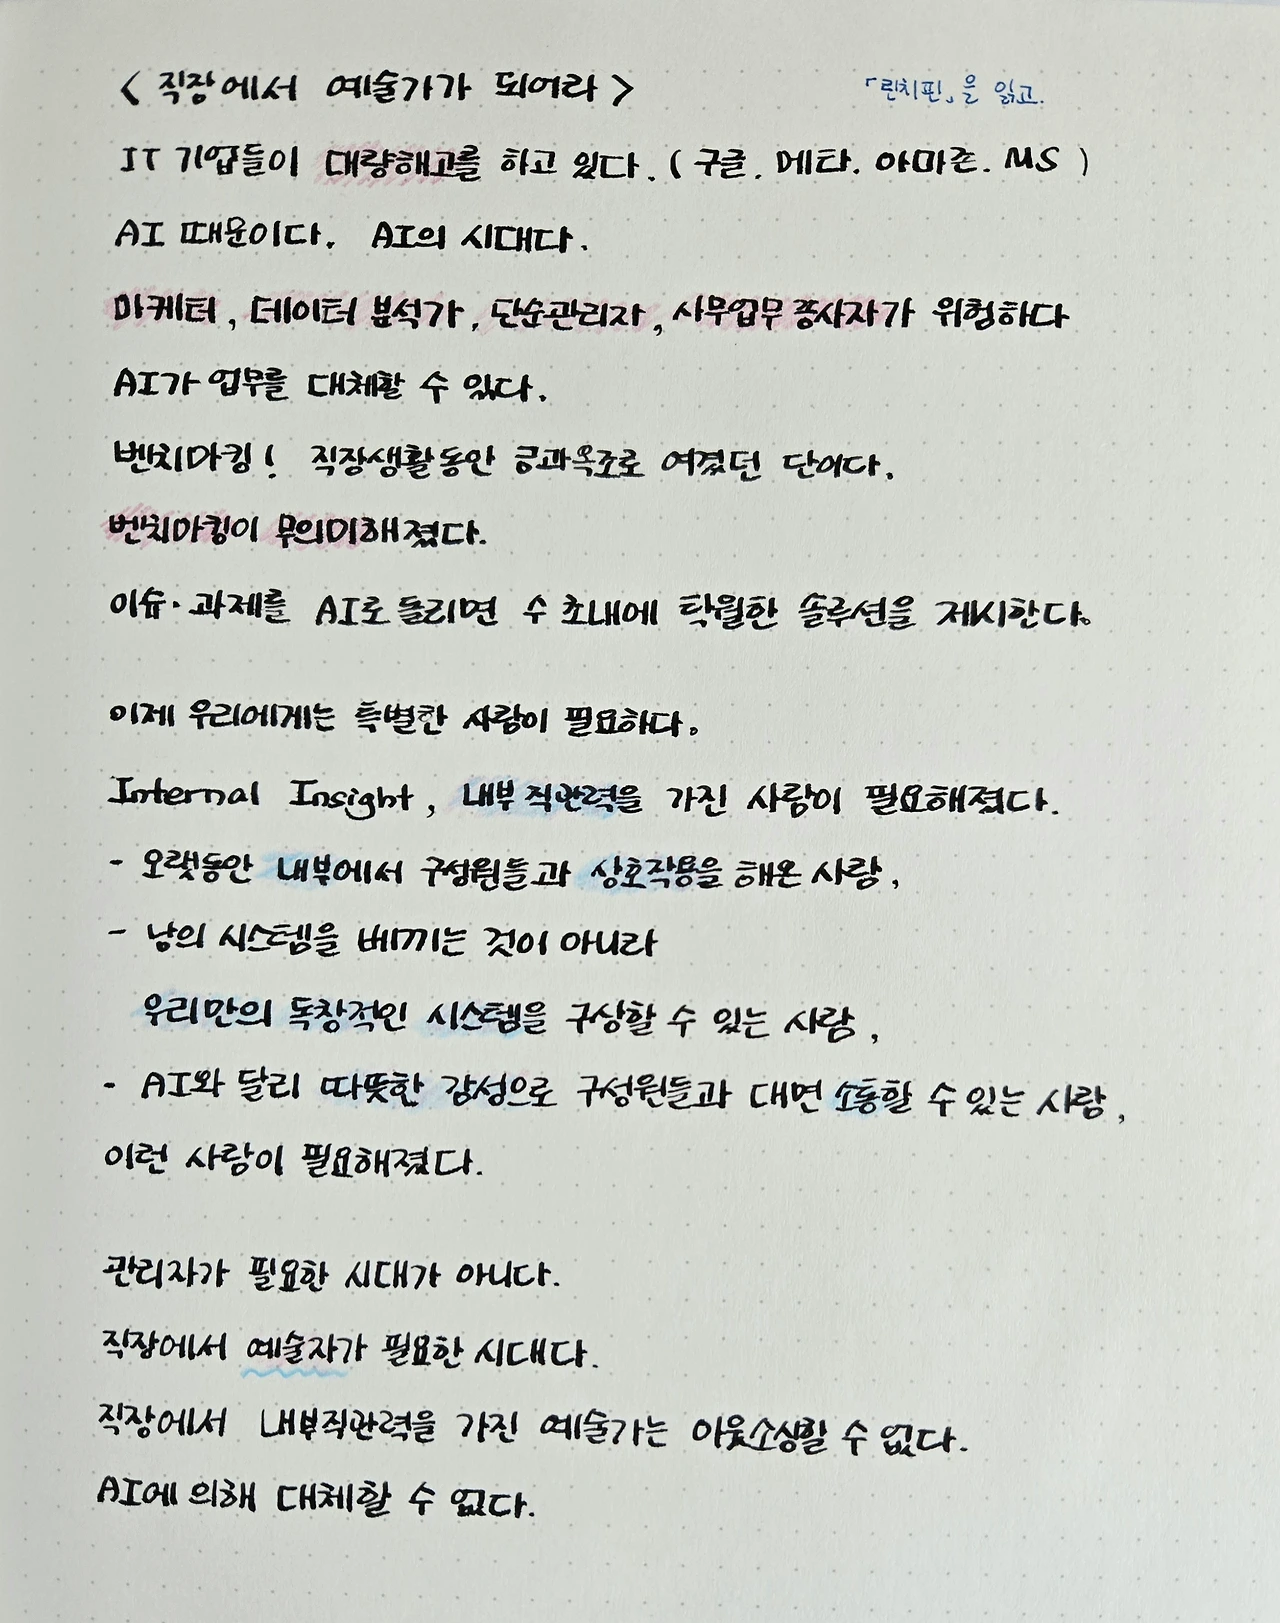 <직장에서 예술가가 되어라>
「린치핀」을 읽고.
IT 기업들이 대량해고를 하고 있다. (구글. 메타. 아마존. MS)
AI 때문이다. AI의 시대다.
마케터, 데이터 분석가, 단순관리자, 사무업무 종사자가 위험하다
AI가 업무를 대체할 수 있다.
벤치마킹! 직장생활동안 금과옥조로 여겼던 단어다.
벤치마킹이 무의미해졌다.
이슈·과제를 AI로 돌리면 수 초내에 탁월한 솔루션을 제시한다.
이제 우리에게는 특별한 사람이 필요하다.
Internal Insight, 내부 직관력을 가진 사람이 필요해졌다.
- 오랫동안 내부에서 구성원들과 상호작용을 해온 사람,
- 남의 시스템을 베끼는 것이 아니라
우리만의 독창적인 시스템을 구상할 수 있는 사람,
- AI와 달리 따뜻한 감성으로 구성원들과 대면 소통할 수 있는 사람,
이런 사람이 필요해졌다.
관리자가 필요한 시대가 아니다.
직장에서 예술자가 필요한 시대다.
직장에서 내부직관력을 가진 예술가는 아웃소싱할 수 없다.
AI에 의해 대체할 수 없다.